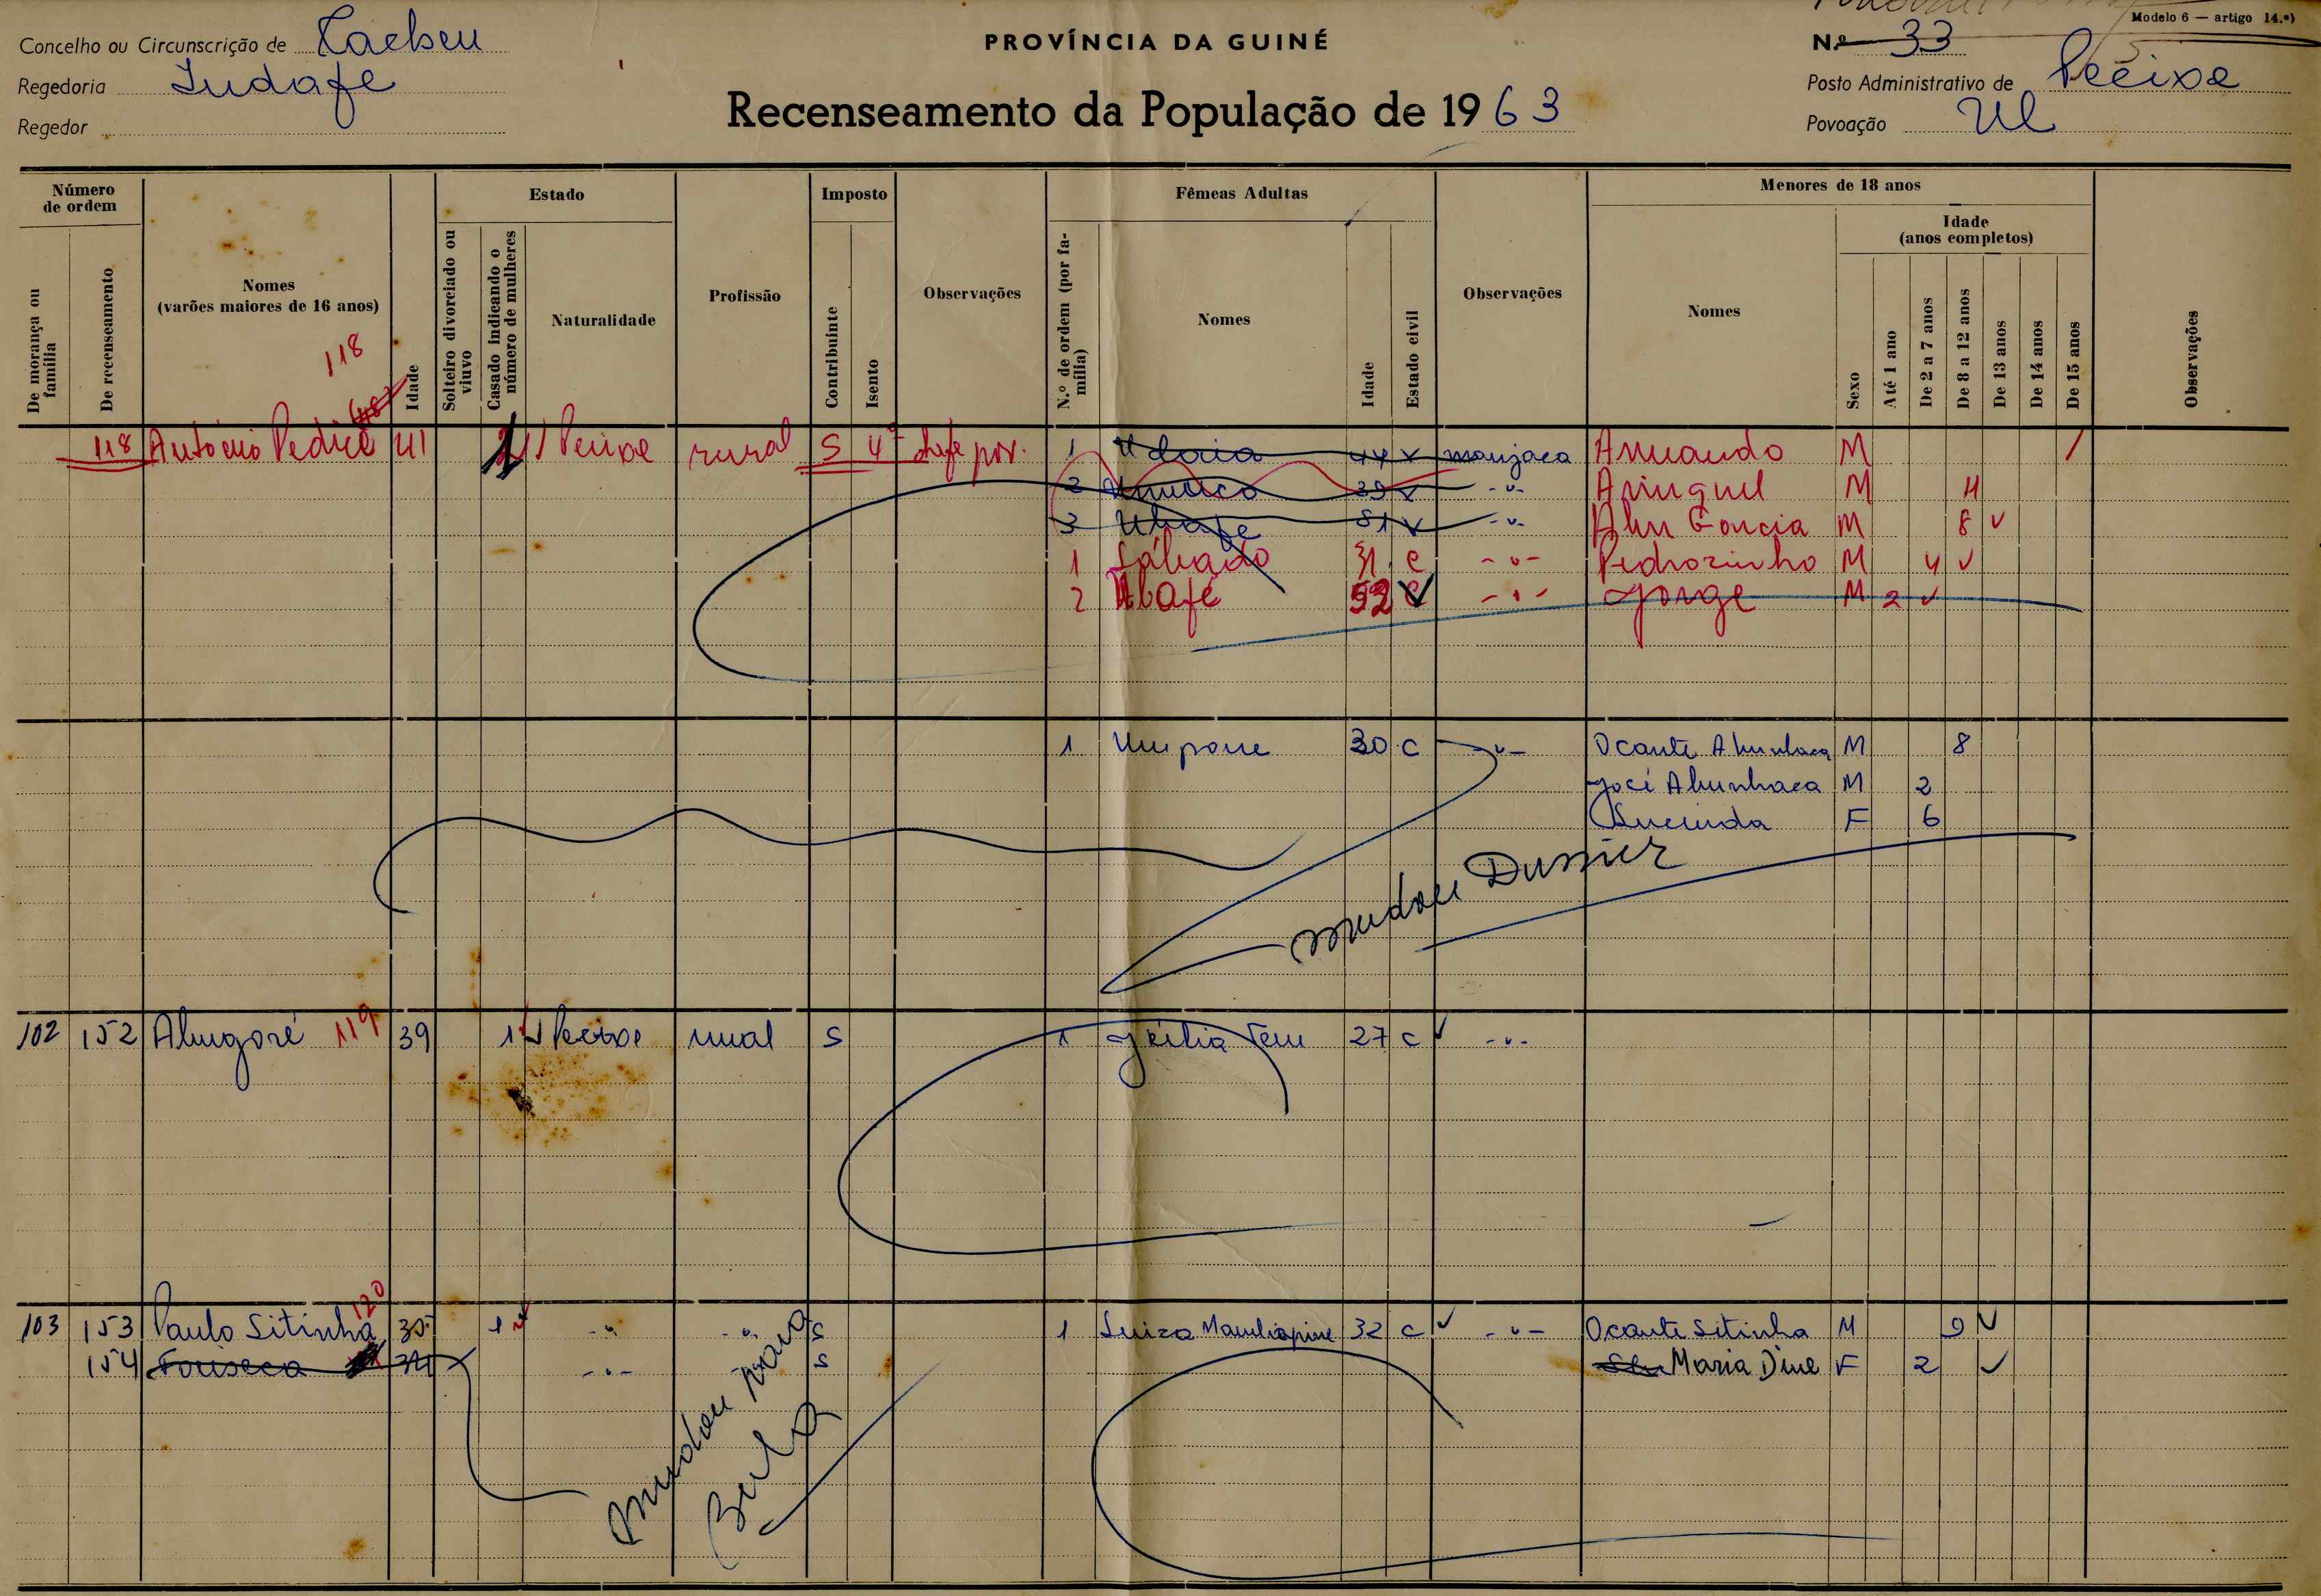 Modelo 6 — artigo 14.º)
Concelho ou Circunscrição de Cacheu
PROVÍNCIA DA GUINÉ
Nº 33
Regedoria Indafe
Posto Administrativo de Pecixe
Regedor
Recenseamento da População de 1963
Povoação Ul
Número de ordem
De morança ou família
De recenseamento
Nomes
(varões maiores de 16 anos)
Idade
Estado
Solteiro divorciado ou viuvo
Casado indicando o número de mulheres
Naturalidade
Profissão
Imposto
Contribuinte
Isento
Observações
Fêmeas Adultas
N.º de ordem (por família)
Nomes
Idade
Estado civil
Observações
Menores de 18 anos
Nomes
Sexo
Idade
(anos completos)
Até 1 ano
De 2 a 7 anos
De 8 a 12 anos
De 13 anos
De 14 anos
De 15 anos
Observações
118
118 António 41 Pecixe rural S chefe pov. 1 44 v manjaca Armando M 1
2 39 v -"- M 11
3 Ubafe 51 v -"- M 8 v
1 Sábado 31 c -"- Pedrozinho M 4 v
2 Ubafé 52 -"- Jorge M 2 v
1 Umpone 30 c -"- Ocante Abunhaca M 8
José Abunhaca M 2
F 6
mudou
102 152 Abugoré 119 39 1 Pecixe rural S 1 Júlia Tem 27 c -"-
103 153 Paulo Sitinha 120 35 1 -"- -"- S 1 Luiza 32 c -"- Ocante Sitinha M 9 v
154 Fonseca -"- S Maria Dine F 2 v
mudou para
Bula